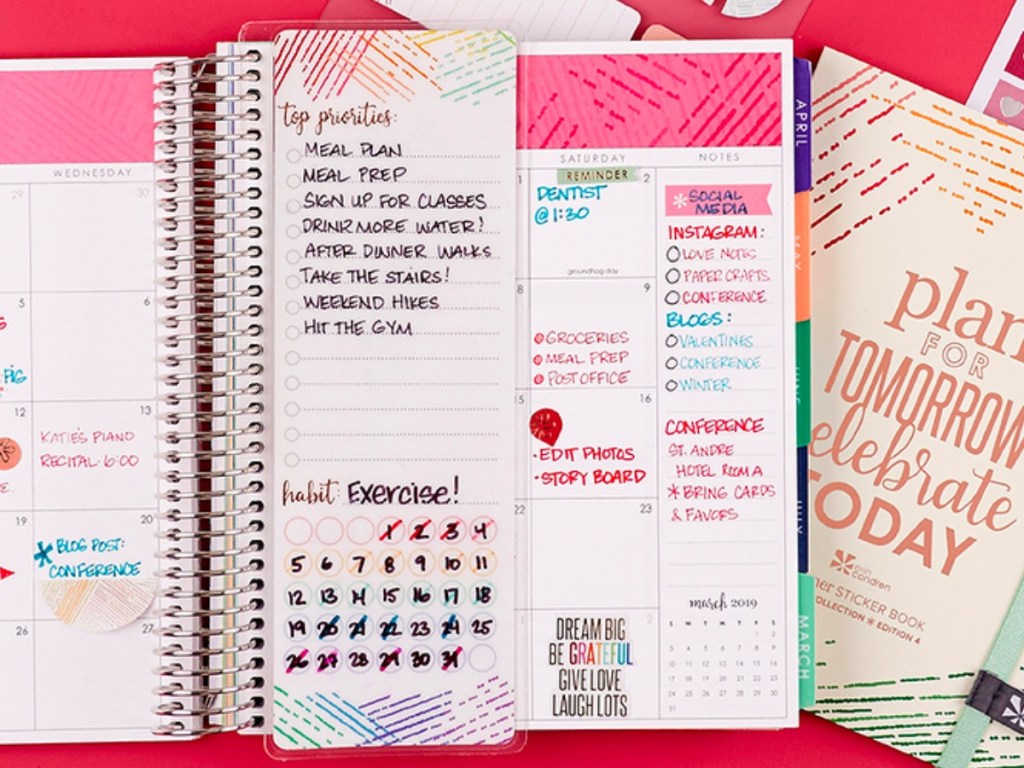 WEDNESDAY
29
30
5
6
PIG
12
13
KATIE'S PIANO
RECITAL 6:00
19
20
BLOG POST:
CONFERENCE
26
27
top priorities:
MEAL PLAN
MEAL PREP
SIGN UP FOR CLASSES
DRINK MORE WATER!
AFTER DINNER WALKS
TAKE THE STAIRS!
WEEKEND HIKES
HIT THE GYM
habit: Exercise!
1 2 3 4
5 6 7 8 9 10 11
12 13 14 15 16 17 18
19 20 21 22 23 24 25
26 27 28 29 30 31
SATURDAY
1
REMINDER 2
DENTIST
@ 1:30
groundhog day
8
9
GROCERIES
MEAL PREP
POST OFFICE
15
16
• EDIT PHOTOS
• STORY BOARD
22
23
DREAM BIG
BE GRATEFUL
GIVE LOVE
LAUGH LOTS
NOTES
* SOCIAL
MEDIA
INSTAGRAM:
LOVE NOTES
PAPER CRAFTS
CONFERENCE
BLOGS:
VALENTINES
CONFERENCE
WINTER
CONFERENCE
ST. ANDRE
HOTEL ROOM A
* BRING CARDS
& FAVORS
march 2019
S M T W T F S
1 2
3 4 5 6 7 8 9
10 11 12 13 14 15 16
17 18 19 20 21 22 23
24 25 26 27 28 29 30
31
APRIL
MAY
JUNE
JULY
MARCH
plan
FOR
TOMORROW
celebrate
TODAY
erin
condren
STICKER BOOK
COLLECTION * EDITION 4